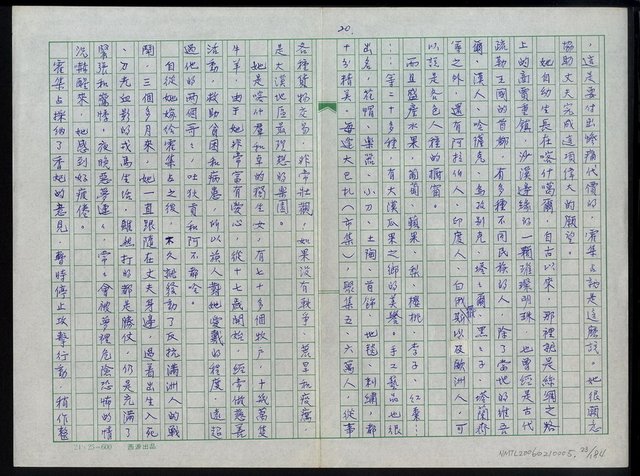 20.
，這是要付出慘痛代價的，霍集占就是這麼說。她很願意
協助丈夫完成這項偉大的願望。
她自幼生長在喀什噶爾，自古以來，那裡就是絲綢之路
上的商貿重鎮，沙漠邊緣的一顆璀璨明珠，也曾經是古代
疏勒王國的首府。有多種不同民族的人，除了當地的維吾
爾、漢人、哈薩克、烏孜別克、塔塔爾、黑黑子、塔蘭齊
等之外，還有阿拉伯人、印度人、白俄斯以及歐洲人，可
以說是各色人種的櫥窗。
而且盛產水果，葡萄、蘋果、梨、櫻桃、李子、紅棗…
…等二十多種，有大漠瓜果之鄉的美譽。手工藝品也很
出名，花帽、樂器、小刀、土陶、首飾、地毯、刺繡，都
十分精美。每逢大巴扎（市集），聚集五、六萬人，從事
各種貨物交易，非常壯觀，如果沒有戰爭、荒旱和疫癘，
是大漠地區最理想的樂園。
她是喀什羣和卓的獨生女，有七十多個牧戶，十幾萬隻
牛羊。由于她非常富有愛心，從十七歲開始，經常做慈善
活動，救助貧困和病患，所以族人對她愛戴的程度，遠超
過他的兩個哥哥，吐狄貢和阿不都哈。
自從她嫁給霍集占之後，不久就發動了反抗滿洲人的戰
鬥，三個多月來，她一直跟隨在丈夫身邊，過着出生入死
、刀光血影的戎馬生活，雖然打的都是勝仗，仍是充滿了
緊張和驚情，夜晚惡夢連連，常常會被夢裡危險恐怖的情
況驚醒來。她感到好疲倦。
霍集占採納了香妃的意見，暫時停止攻擊行動，稍作整
21×25=600 西源出品
NMTL20060210005、23/184